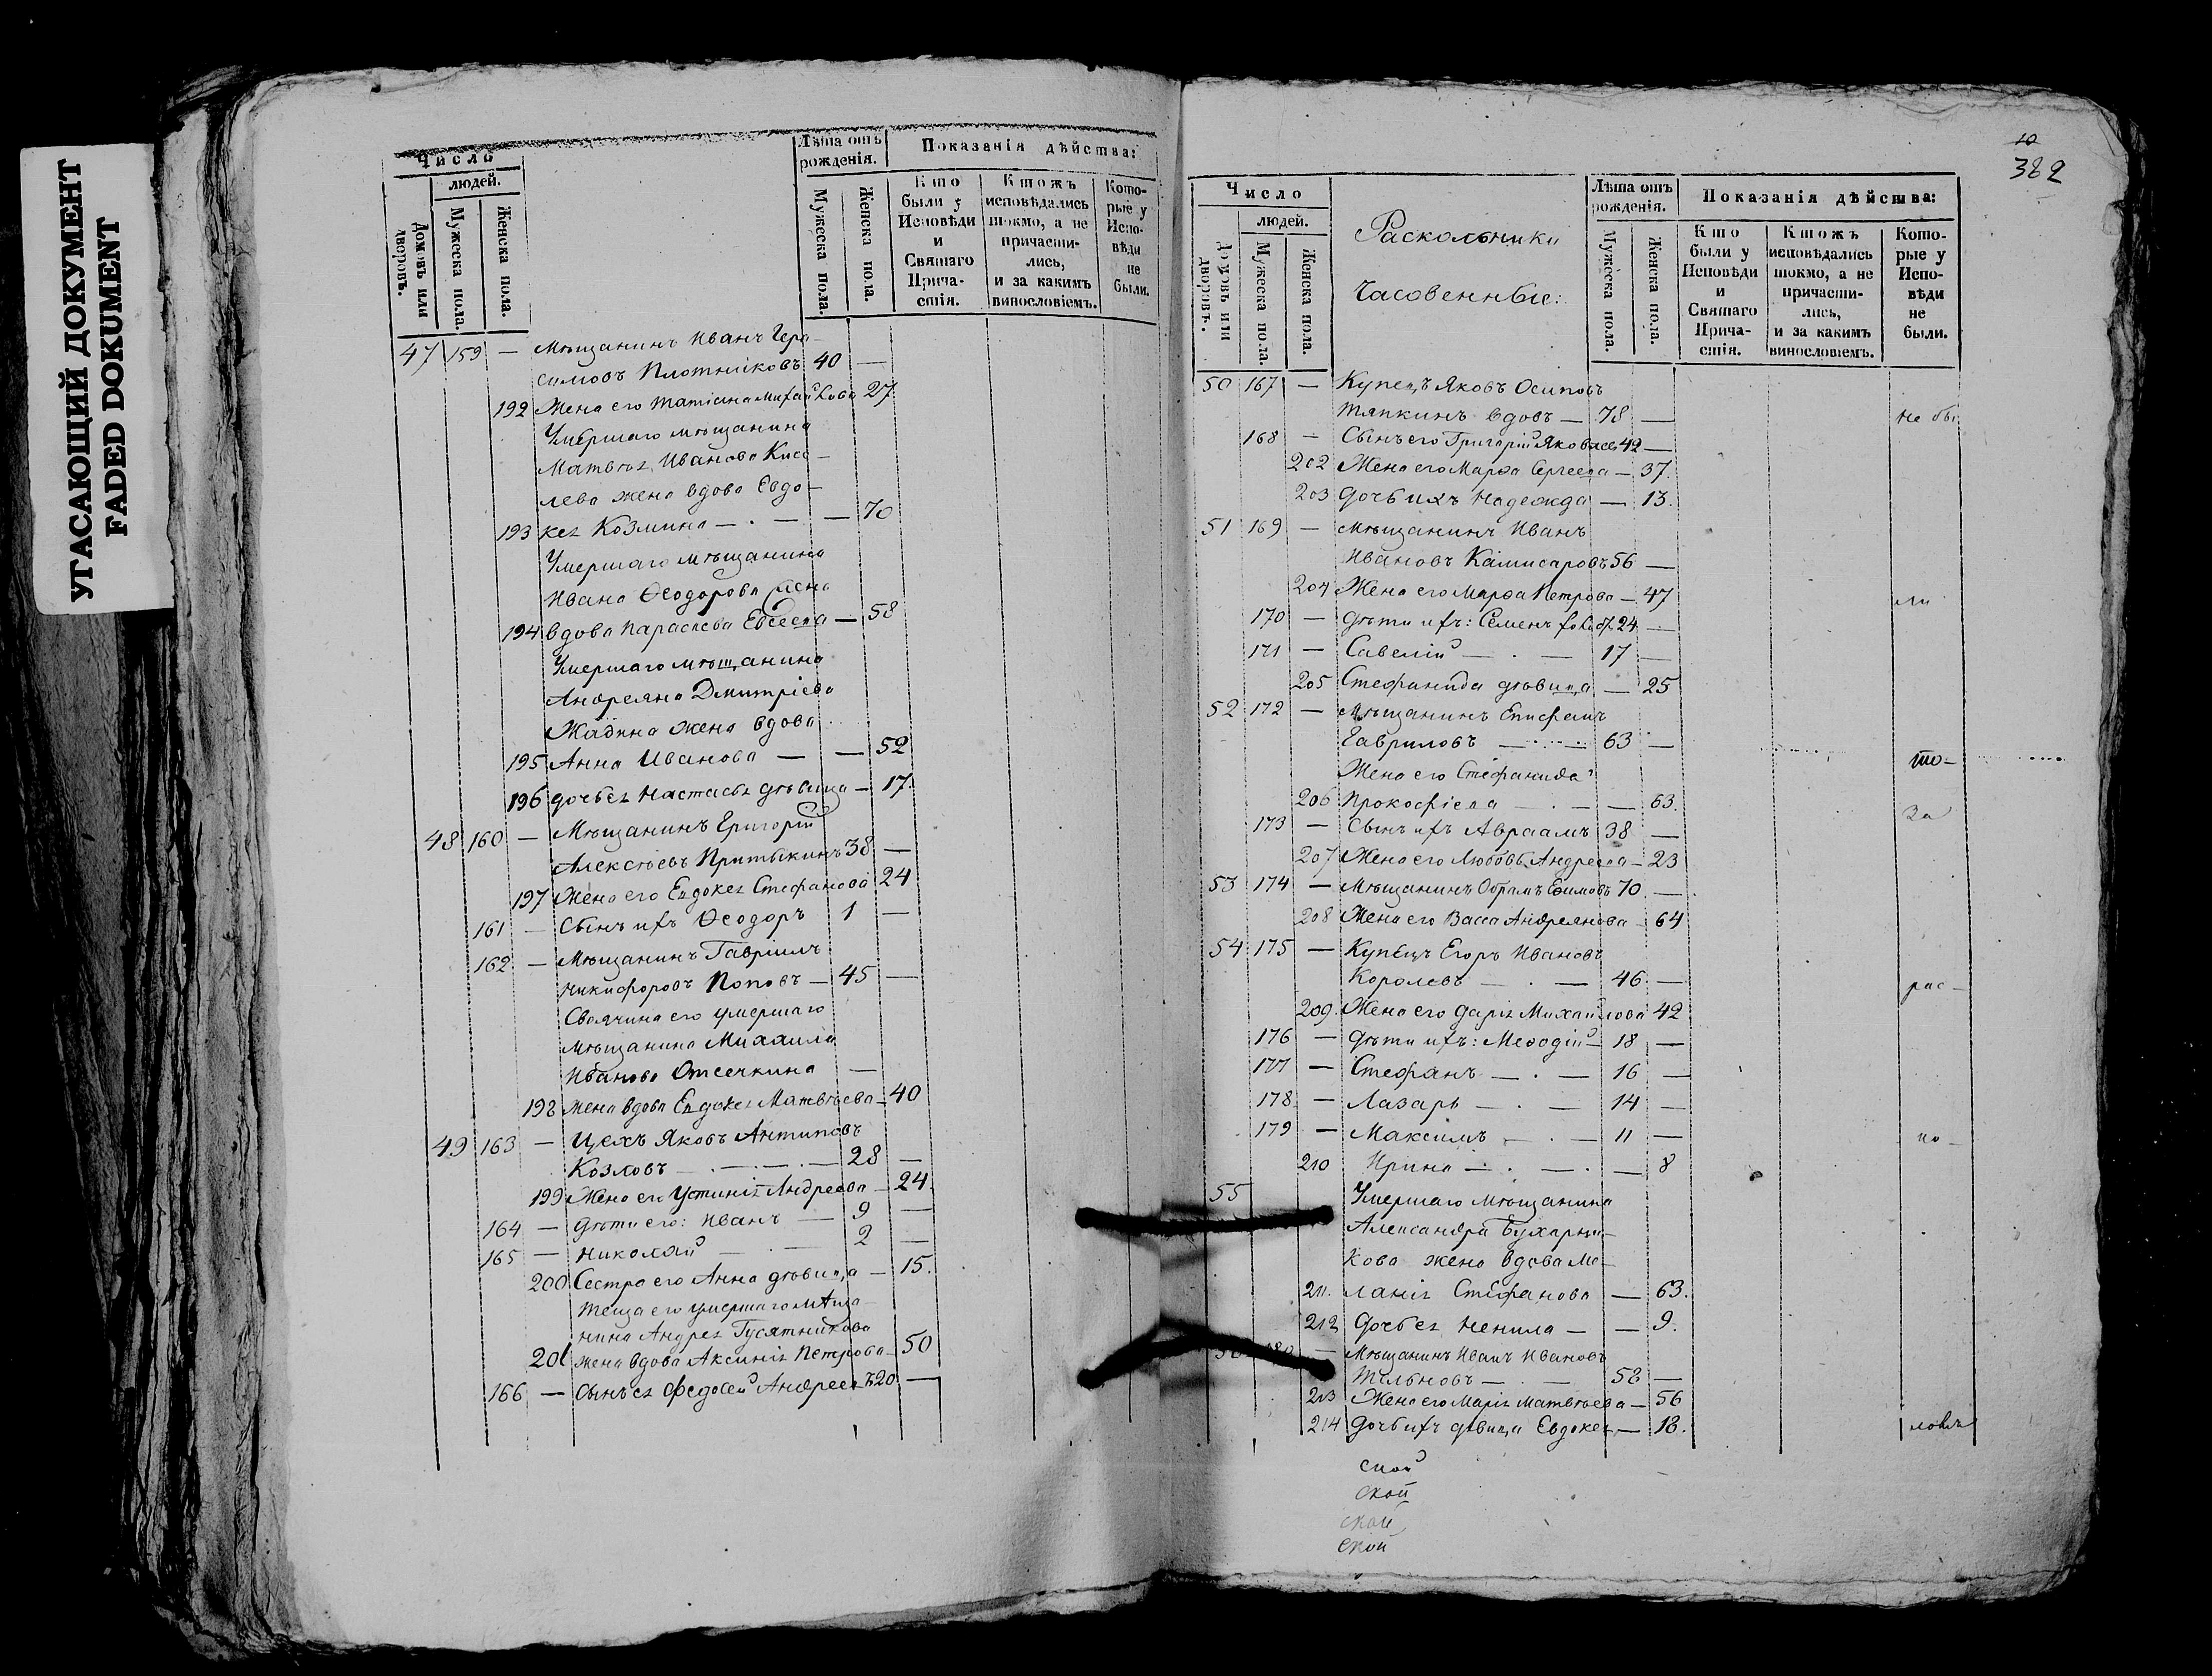 УГАСАЮЩИЙ ДОКУМЕНТ
FADED DOKUMENT
Число
людей.
Домовъ или дворовъ.
Мужеска пола.
Женска пола.
Лѣта отъ рожденія.
Мужеска пола.
Женска пола.
Показанія дѣйства:
Кто были у Исповѣди и Святаго Прича-стія.
Ктожъ исповѣдались токмо, а не причасти-лись, и за какимъ винословіемъ.
Кото-рые у Испо-вѣди не были.
47 159 — Мѣщанинъ Иванъ Гера-
симовъ Плотниковъ 40 —
192 Жена его Татіана Михайлова 27
Умершаго мѣщанина
Матвѣя Иванова Кисе-
лева жена вдова Евдо-
193 кея Козмина — . — — 70
Умершаго мѣщанина
Ивана Ѳеодорова жена
194 вдова Параскева Евсеева — 58
Умершаго мѣщанина
Андреяна Дмитріева
Жадина жена вдова
195 Анна Иванова — — 52
196 дочь ея Настасья дѣвица — 17.
48 160 — Мѣщанинъ Григорій
Алексѣевъ Притыкинъ 38 —
197 Жена его Евдокея Стефанова 24
161 — Сынъ ихъ Ѳеодоръ 1 —
162 — Мѣщанинъ Гавріилъ
Никифоровъ Поповъ — 45 —
Своячина его умершаго
мѣщанина Михаила
Иванова Отсечкина —
198 жена вдова Евдокея Матвѣева — 40
49 163 — Цехъ Яковъ Антиповъ
Козловъ — . — . — . — 28 —
199 Жена его Устинія Андреева — 24.
164 — дѣти его: Иванъ — 9 —
165 — Николай — . — 2 —
200 Сестра его Анна дѣвица — 15.
Теща его умершаго мѣща
нина Андрея Гусятникова
201 жена вдова Аксинія Петрова — 50
166 — Сынъ ея Федосей Андреевъ 20 —
10
382
Число
людей.
Домовъ или дворовъ.
Мужеска пола.
Женска пола.
Раскольники
Часовенные:
Лѣта отъ рожденія.
Мужеска пола.
Женска пола.
Показанія дѣйства:
Кто были у Исповѣди и Святаго Прича-стія.
Ктожъ исповѣдались токмо, а не причасти-лись, и за какимъ винословіемъ.
Кото-рые у Испо-вѣди не были.
50 167 — Купецъ Яковъ Осиповъ
Тяпкинъ вдовъ — 78 — не бы
168 — Сынъ его Григорій Яковлевъ 42 —
202 Жена его Марѳа Сергеева — 37.
203 дочь ихъ Надежда — 13.
51 169 — Мѣщанинъ Иванъ
Ивановъ Камисаровъ 56 —
204 Жена его Марѳа Петрова — 47 ли
170 — дѣти ихъ: Семенъ 24 —
171 — Савелій — . — 17 —
205 Стефанида дѣвица — 25
52 172 — Мѣщанинъ Епифанъ
Гавриловъ — 63 — то-
Жена его Стефанида
206 Прокофіева — . — — 63.
173 — Сынъ ихъ Авраамъ 38 — за
207 Жена его Любовь Андреева — 23
53 174 — Мѣщанинъ Обрамъ Ефимовъ 70 —
208 Жена его Васса Андреянова — 64
54 175 — Купецъ Егоръ Ивановъ
Королевъ — . — 46 — рас-
209. Жена его Дарія Михайлова 42
176 — дѣти ихъ: Меѳодій — 18 —
177 — Стефанъ — . — 16 —
178 — Лазарь — . — 14 —
179 — Максимъ — . — 11 — ко-
210 Ирина — . — . — 8
55 Умершаго мѣщанина
Александра Бухарни-
кова жена вдова Ме-
211. ланія Стефанова — 63.
212 дочь ея Ненила — — 9.
— Мѣщанинъ Иванъ Ивановъ
— . — 58 —
213 Жена его Марія Матвѣева — 56
214 дочь ихъ дѣвица Евдокея — 18. ломъ
ской
ской
ской
ской